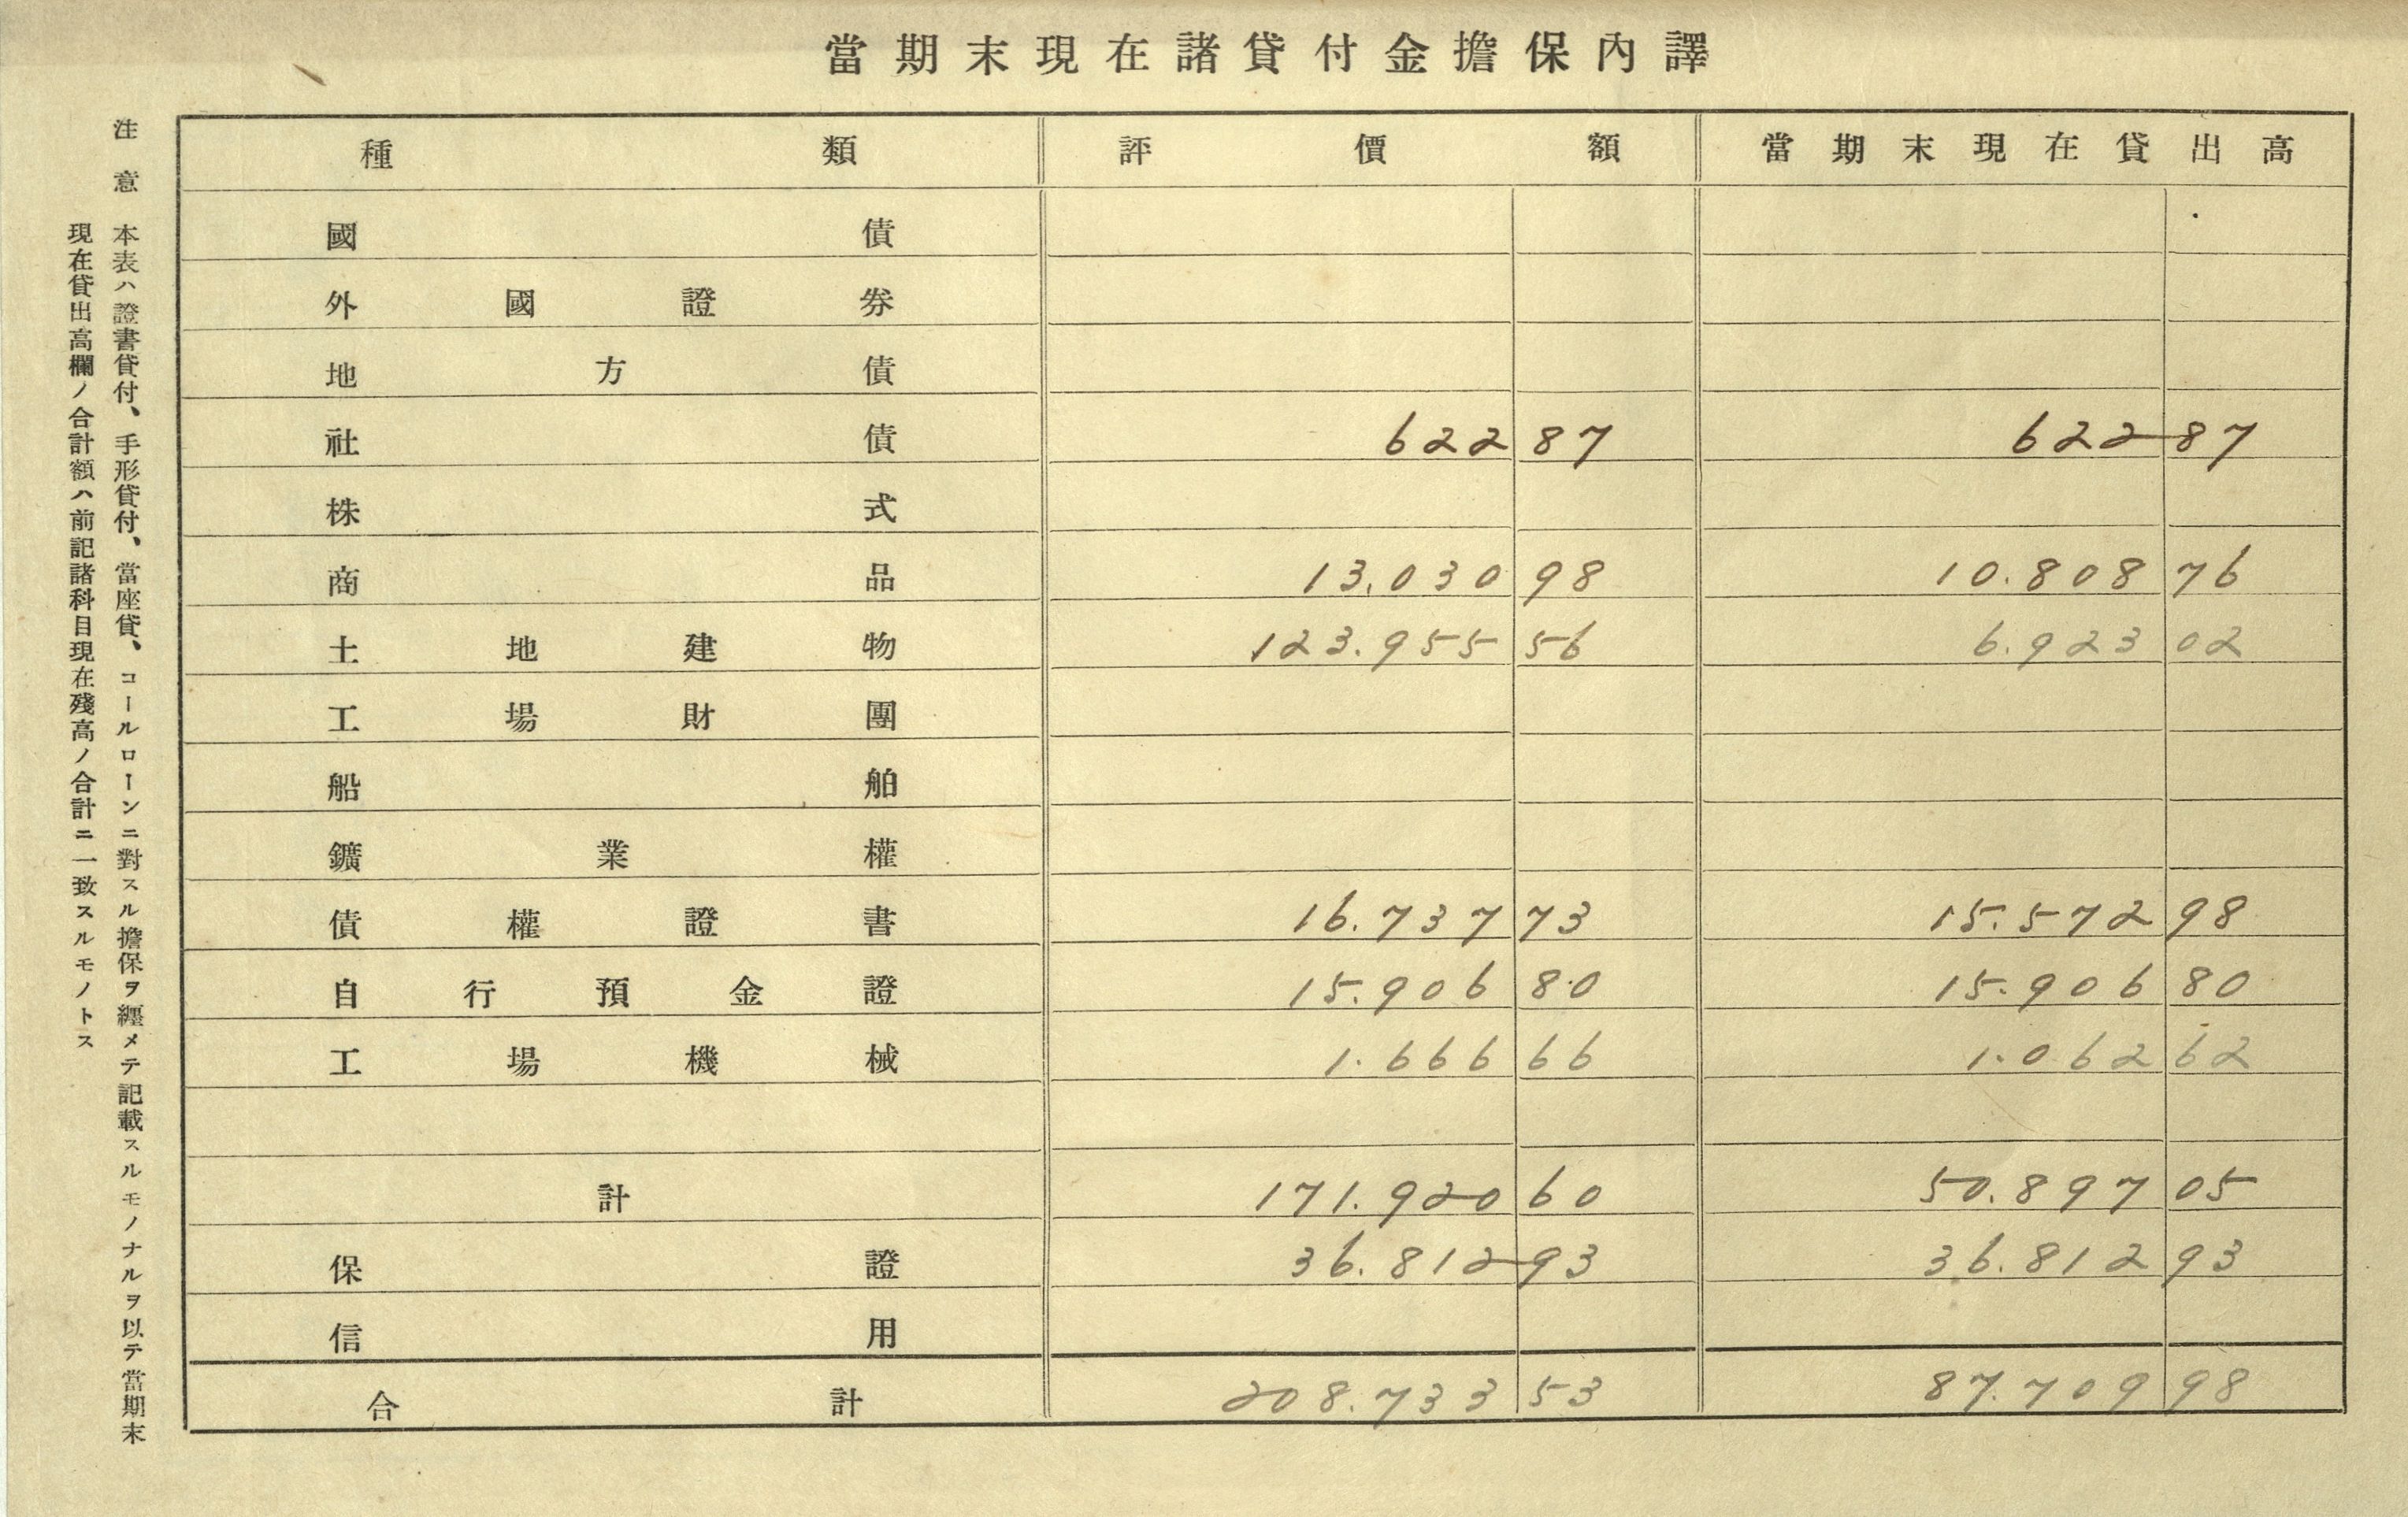 當期末現在諸貸付金擔保內譯
種類 評價額 當期末現在貸出高
國債
外國證券
地方債
社債 622 87 622 87
株式
商品 13.030 98 10.808 76
土地建物 123.955 56 6.923 02
工場財團
船舶
鑛業權
債權證書 16.737 73 15.572 98
自行預金證 15.906 80 15.906 80
工場機械 1.666 66 1.062 62
計 171.920 60 50.897 05
保證 36.812 93 36.812 93
信用
合計 208.733 53 87.709 98
注意 本表ハ證書貸付、手形貸付、當座貸、コールローンニ對スル擔保ヲ纒メテ記載スルモノナルヲ以テ當期末
現在貸出高欄ノ合計額ハ前記諸科目現在殘高ノ合計ニ一致スルモノトス